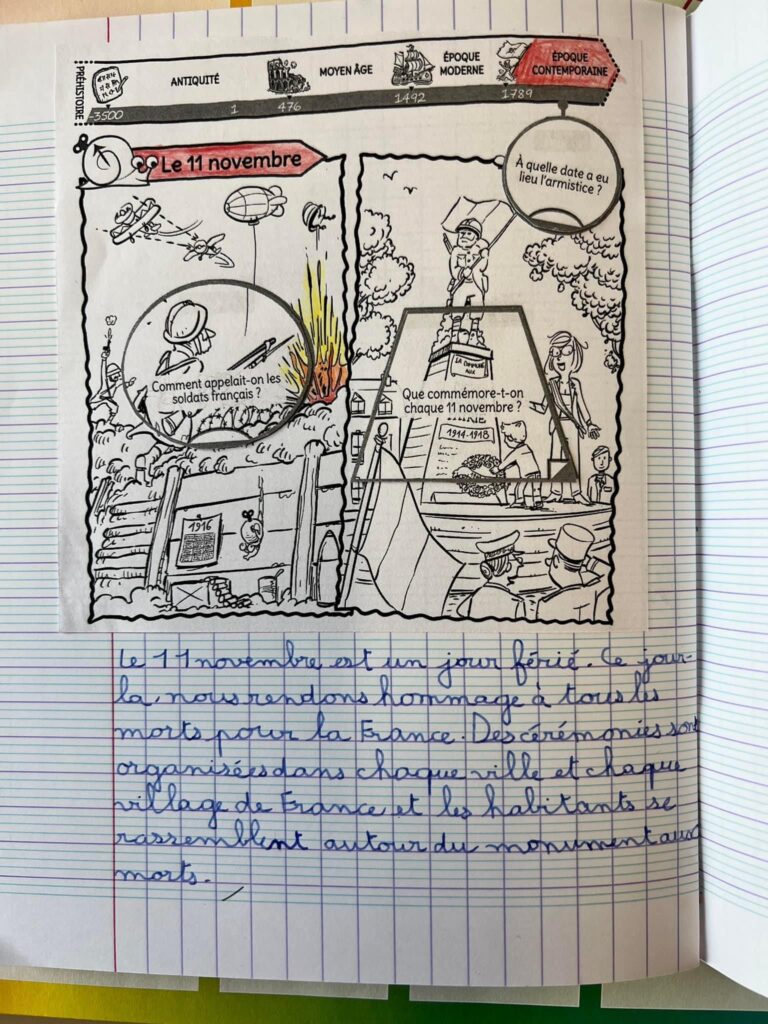 PRÉHISTOIRE
ANTIQUITÉ
MOYEN ÂGE
ÉPOQUE
MODERNE
ÉPOQUE
CONTEMPORAINE
-3500
1
476
1492
1789
Le 11 novembre
À quelle date a eu
lieu l'armistice ?
Comment appelait-on les
soldats français ?
LA COMMUNE
AUX
Que commémore-t-on
chaque 11 novembre ?
1914-1918
1916
Le 11 novembre est un jour férié. Ce jour-
la, nous rendons hommage à tous les
morts pour la France. Des cérémonies sont
organisées dans chaque ville et chaque
village de France et les habitants se
rassemblent autour du monument aux
morts.